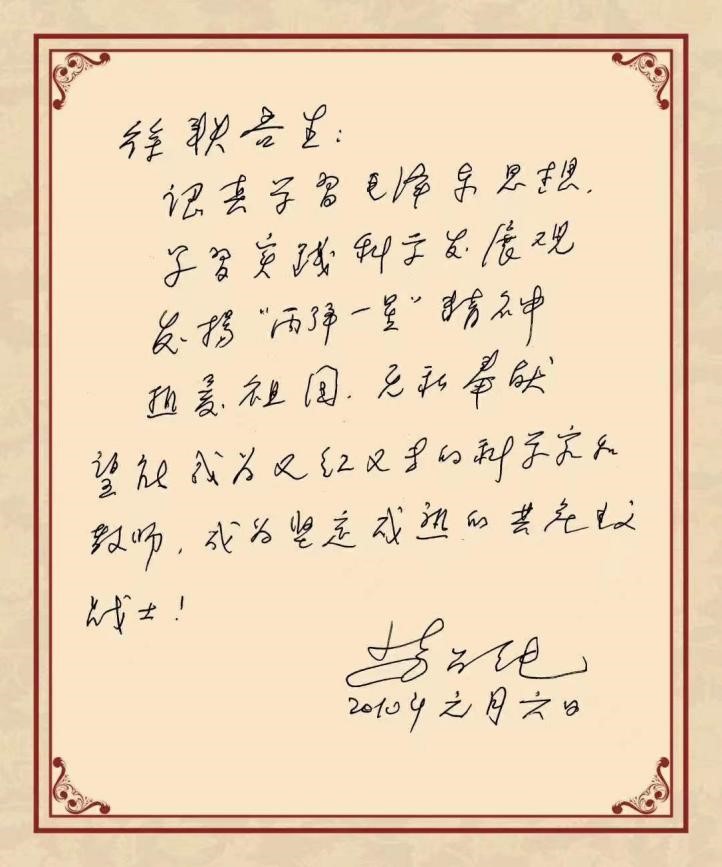 徐 吾生:
认真学习毛泽东思想.
学习实践科学发展观
发扬“两弹一星”精神
热爱祖国.无私奉献
望能成为又红又专的科学家和
教师,成为坚定成熟的共产主义
战士!
2010年元月六日